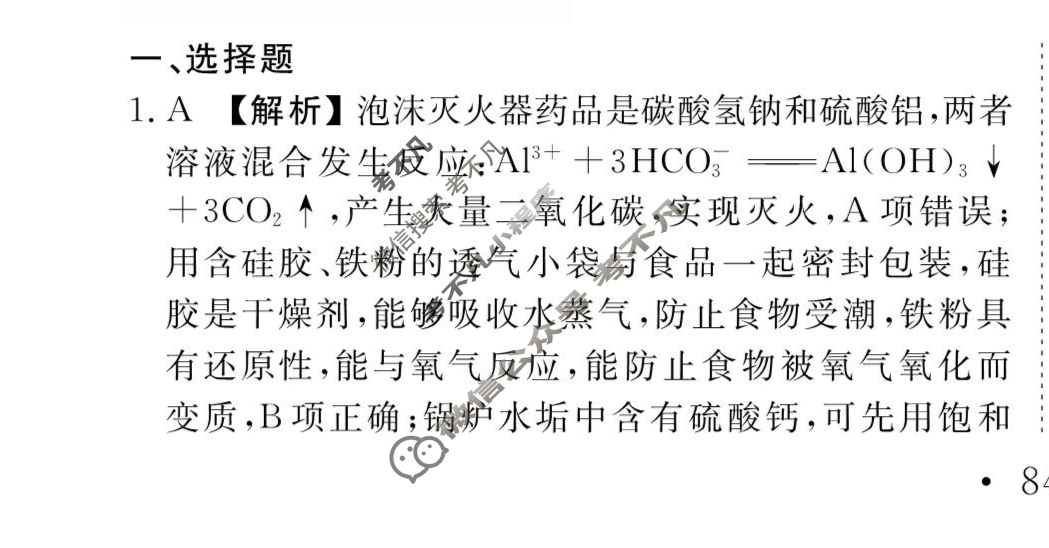 一、选择题
1. A 【解析】泡沫灭火器药品是碳酸氢钠和硫酸铝,两者
溶液混合发生反应:Al³⁺ +3HCO₃⁻ ══Al(OH)₃↓
+3CO₂↑,产生大量二氧化碳,实现灭火,A 项错误;
用含硅胶、铁粉的透气小袋与食品一起密封包装,硅
胶是干燥剂,能够吸收水蒸气,防止食物受潮,铁粉具
有还原性,能与氧气反应,能防止食物被氧气氧化而
变质,B 项正确;锅炉水垢中含有硫酸钙,可先用饱和
• 84
考不凡
微信搜索 考不凡
考不凡小程序
微信公众号 考不凡